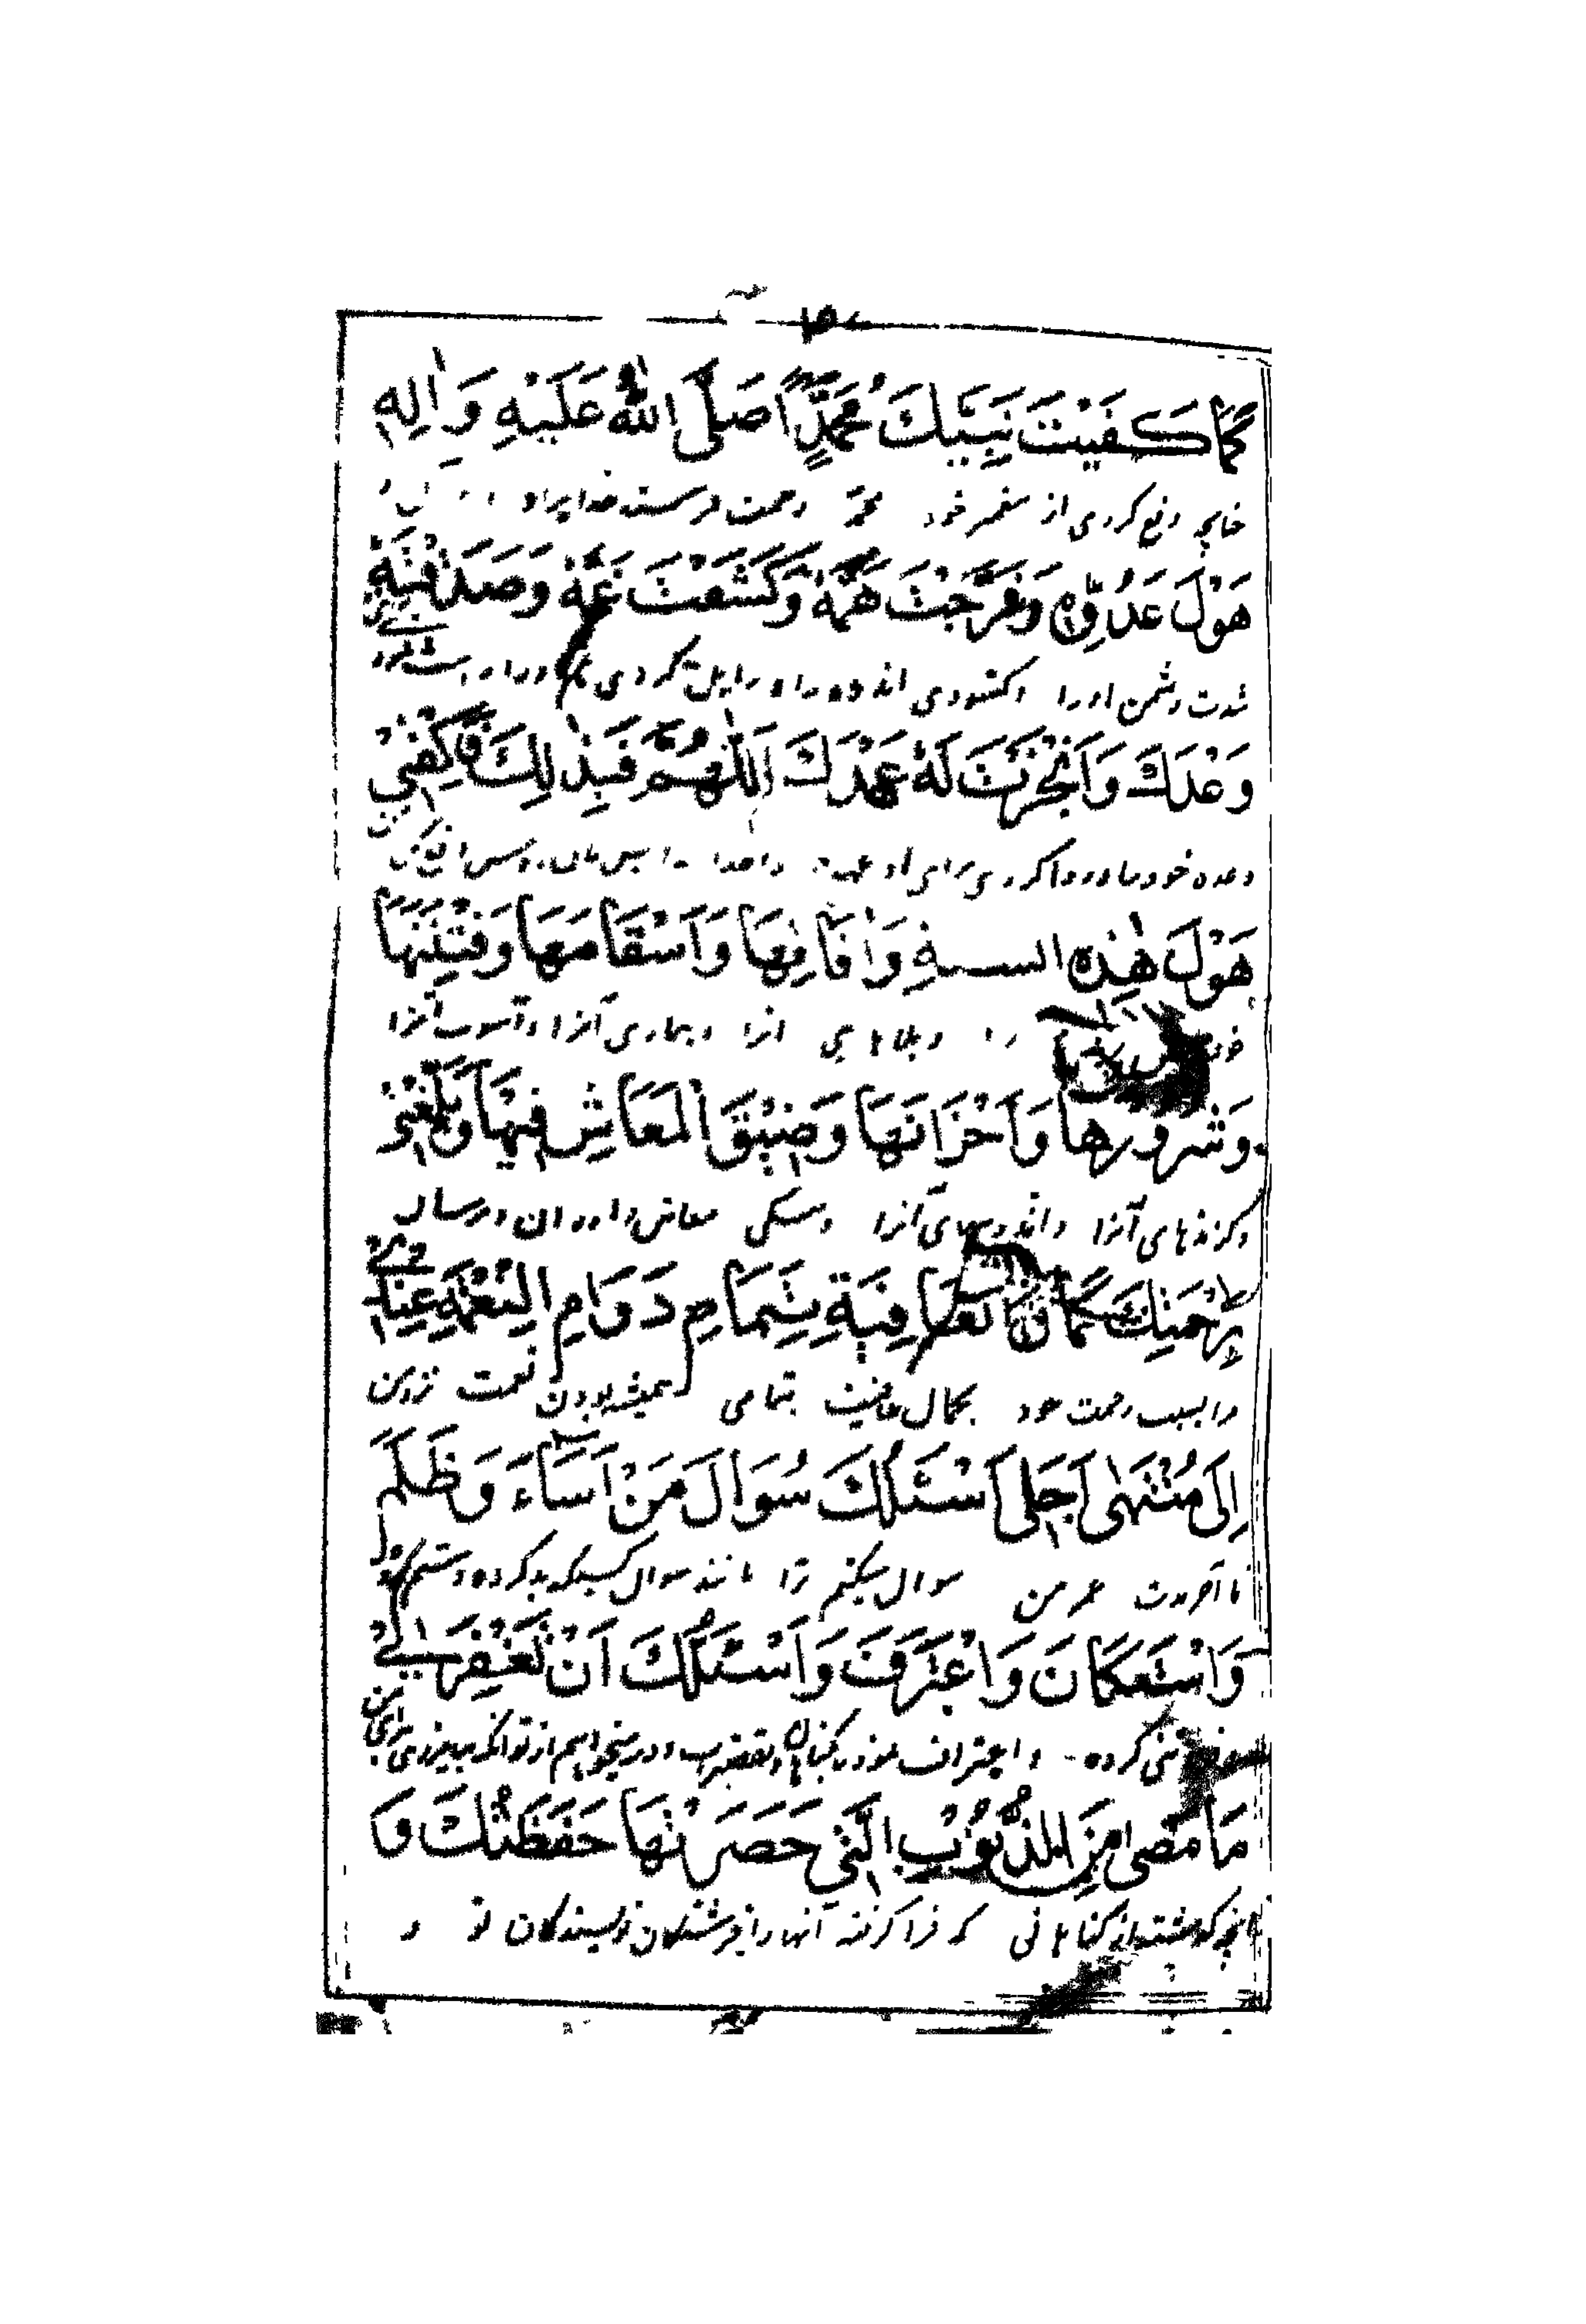 كَمَا كَفَيْتَ نَبِيَّكَ مُحَمَّدًا صَلَّى اللهُ عَلَيْهِ وَاٰلِهِ
چنانچه دفع کردی از پیغمبر خود محمد رحمت فرستد خدا بر او و آل
هَوْلَ عَدُوِّهِ وَفَرَّجْتَ هَمَّهُ وَكَشَفْتَ غَمَّهُ وَصَدَقْتَهُ
شدت دشمن او را و گشودی اندوه را و زایل کردی غم او را و راست کردی
وَعْدَكَ وَاَنْجَزْتَ لَهُ عَهْدَكَ اَللّٰهُمَّ فَبِذٰلِكَ فَاكْفِنِيْ
وعده خود را و روا کردی برای او عهد
هَوْلَ هٰذِهِ السنةِ وَاٰفَاتِهَا وَاَسْقَامَهَا وَفِتْنَتَهَا
را و بلاهای آنرا و بیماری آنرا و آشوب آنرا
وَشُرُورَهَا وَاَحْزَانَهَا وَضِيْقَ الْمَعَاشِ فِيْهَا وَبَلِّغْنِيْ
و گزندهای آنرا و اندوههای آنرا و تنگی معاش را در آن و برسان
بِرَحْمَتِكَ كَمَالَ الْعَافِيَةِ بِتَمَامِ دَوَامِ النِّعْمَةِ عِنْدِيْ
مرا بسبب رحمت خود بکمال عافیت بتمامی همیشه بودن نعمت نزد من
اِلَى مُنْتَهٰى اَجَلِي اَسْئَلُكَ سُوَالَ مَنْ اَسَاءَ وَظَلَمَ
تا آخر مدت عمر من سوال میکنم ترا مانند سوال کسیکه بد کرده و ستم
وَاسْتَكَانَ وَاعْتَرَفَ وَاَسْئَلُكَ اَنْ تَغْفِرَ لِيْ
فروتنی کرده و اعتراف نموده بگناهان و تقصیر و در میخواهم از تو آنکه بیامرزی برای من
مَا مَضٰى مِنَ الذُّنُوْبِ الَّتِيْ حَصَرَتْهَا حَفَظَتُكَ وَ
آنچه گذشته از گناهانی که فرا گرفته آنها را فرشتگان نویسندگان تو و